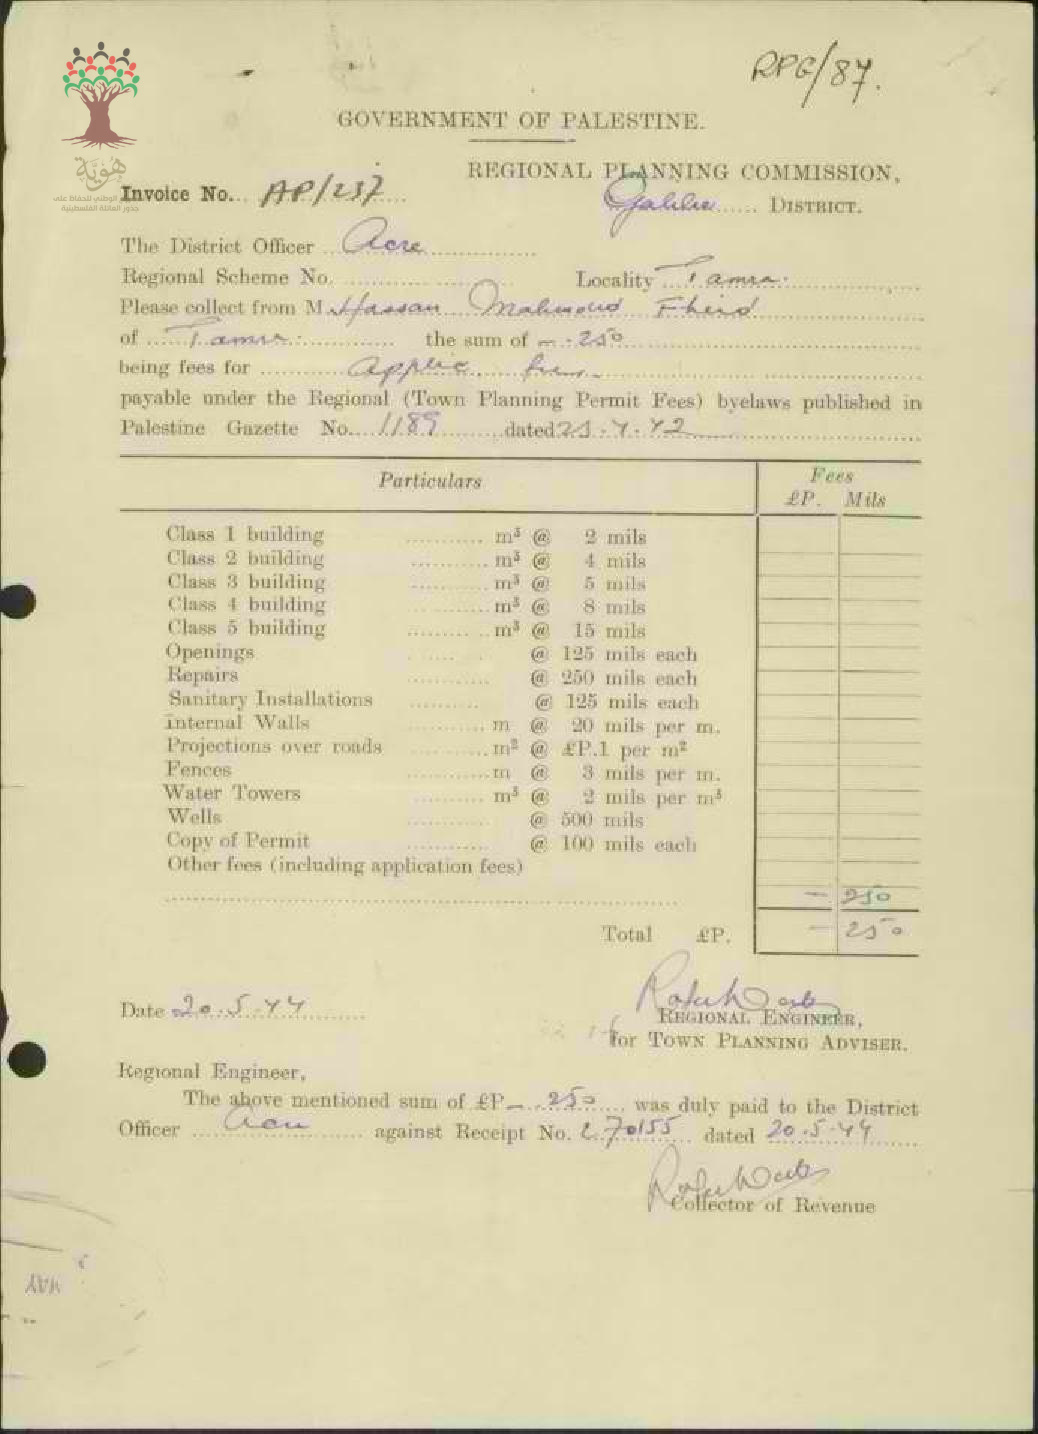 RPG/87.
GOVERNMENT OF PALESTINE.
هُوِيَّة
REGIONAL PLANNING COMMISSION,
Invoice No... AP/237
الوطني للحفاظ على
جذور العائلة الفلسطينية
Galilee ...... DISTRICT.
The District Officer .. Acre ................
Regional Scheme No. ....................... Locality ... Tamra. ................
Please collect from M. Hassan Mahmoud Fheid
of ...... Tamra. ............ the sum of —.250 ................
being fees for ............ Applic. fees. ................
payable under the Regional (Town Planning Permit Fees) byelaws published in
Palestine Gazette No.... 1189 ......... dated 23.4.42 ................
Particulars Fees
£P. Mils
Class 1 building ........... m³ @ 2 mils
Class 2 building ........... m³ @ 4 mils
Class 3 building ........... m³ @ 5 mils
Class 4 building ........... m³ @ 8 mils
Class 5 building ........... m³ @ 15 mils
Openings ........... @ 125 mils each
Repairs ........... @ 250 mils each
Sanitary Installations .......... @ 125 mils each
Internal Walls ........... m @ 20 mils per m.
Projections over roads ........... m² @ £P.1 per m²
Fences ........... m @ 3 mils per m.
Water Towers .......... m³ @ 2 mils per m³
Wells ........... @ 500 mils
Copy of Permit ........... @ 100 mils each
Other fees (including application fees)
................................................ — 250
Total £P. — 250
Date 20.5.44 ..........
REGIONAL ENGINEER,
for TOWN PLANNING ADVISER.
Regional Engineer,
The above mentioned sum of £P —.250 ...... was duly paid to the District
Officer ..... Acre ........ against Receipt No. L 70155 .... dated 20.5.44 .......
Collector of Revenue
MAY